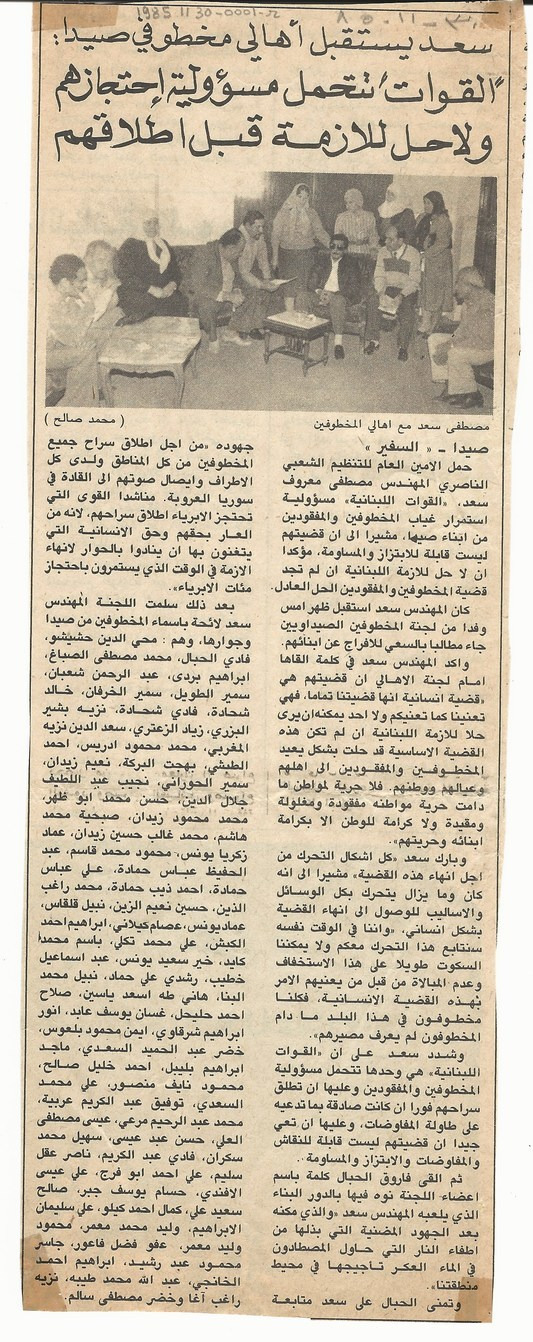 1985 11 30-0001-2
سعد يستقبل أهالي مخطوفي صيدا:
"القوات" تتحمل مسؤولية إحتجازهم
ولا حل للازمة قبل اطلاقهم
مصطفى سعد مع اهالي المخطوفين
( محمد صالح )
صيدا ــ « السفير »
حمل الامين العام للتنظيم الشعبي
الناصري المهندس مصطفى معروف
سعد، «القوات اللبنانية» مسؤولية
استمرار غياب المخطوفين والمفقودين
من ابناء صيدا، مشيرا الى ان قضيتهم
ليست قابلة للابتزاز والمساومة، مؤكدا
ان لا حل للازمة اللبنانية ان لم تجد
قضية المخطوفين والمفقودين الحل العادل.
كان المهندس سعد استقبل ظهر امس
وفدا من لجنة المخطوفين الصيداويين
جاء مطالبا بالسعي للافراج عن ابنائهم.
واكد المهندس سعد في كلمة القاها
امام لجنة الاهالي ان قضيتهم هي
«قضية انسانية انها قضيتنا تماما، فهي
تعنينا كما تعنيكم ولا احد يمكنه ان يرى
حلا للازمة اللبنانية ان لم تكن هذه
القضية الاساسية قد حلت بشكل يعيد
المخطوفين والمفقودين الى اهلهم
وعيالهم ووطنهم. فلا حرية لمواطن ما
دامت حرية مواطنه مفقودة ومغلولة
ومقيدة ولا كرامة للوطن الا بكرامة
ابنائه وحريتهم».
وبارك سعد «كل اشكال التحرك من
اجل انهاء هذه القضية» مشيرا الى انه
كان وما يزال يتحرك بكل الوسائل
والاساليب للوصول الى انهاء القضية
بشكل انساني، «واننا في الوقت نفسه
سنتابع هذا التحرك معكم ولا يمكننا
السكوت طويلا على هذا الاستخفاف
وعدم المبالاة من قبل من يعنيهم الامر
بهذه القضية الانسانية، فكلنا
مخطوفون في هذا البلد ما دام
المخطوفون لم يعرف مصيرهم».
وشدد سعد على ان «القوات
اللبنانية» هي وحدها تتحمل مسؤولية
المخطوفين والمفقودين وعليها ان تطلق
سراحهم فورا ان كانت صادقة بما تدعيه
على طاولة المفاوضات، وعليها ان تعي
جيدا ان قضيتهم ليست قابلة للنقاش
والمفاوضات والابتزاز والمساومة.
ثم القى فاروق الحبال كلمة باسم
اعضاء اللجنة نوه فيها بالدور البناء
الذي يلعبه المهندس سعد «والذي مكنه
بعد الجهود المضنية التي بذلها من
اطفاء النار التي حاول المصطادون
في الماء العكر تأجيجها في محيط
منطقتنا».
وتمنى الحبال على سعد متابعة
جهوده «من اجل اطلاق سراح جميع
المخطوفين من كل المناطق ولدى كل
الاطراف وايصال صوتهم الى القادة في
سوريا العروبة. مناشدا القوى التي
تحتجز الابرياء اطلاق سراحهم، لانه من
العار بحقهم وحق الانسانية التي
يتغنون بها ان ينادوا بالحوار لانهاء
الازمة في الوقت الذي يستمرون باحتجاز
مئات الابرياء».
بعد ذلك سلمت اللجنة المهندس
سعد لائحة باسماء المخطوفين من صيدا
وجوارها، وهم : محي الدين حشيشو،
فادي الحبال، محمد مصطفى الصباغ،
ابراهيم بردى، عبد الرحمن شعبان،
سمير الطويل، سمير الخرفان، خالد
شحادة، فادي شحادة، نزيه بشير
البزري، زياد الزعتري، سعد الدين نزيه
المغربي، محمد محمود ادريس، احمد
الطبشي، بهجت البركة، نعيم زيدان،
سمير الحوراني، نجيب عبد اللطيف
جلال الدين، حسن محمد ابو ظهر،
محمد محمود زيدان، صبحية محمد
هاشم، محمد غالب حسين زيدان، عماد
زكريا يونس، محمود محمد قاسم، عبد
الحفيظ عباس حمادة، علي عباس
حمادة، احمد ذيب حمادة، محمد راغب
الذين، حسين نعيم الزين، نبيل قلقاس،
عماد يونس، عصام كيلاني، ابراهيم احمد
الكبش، علي محمد تكلي، باسم محمد
كايد، خير سعيد يونس، عبد اسماعيل
خطيب، رشدي علي حماد، نبيل محمد
البنا، هاني طه اسعد ياسين، صلاح
احمد حليحل، غسان يوسف عابد، انور
ابراهيم شرقاوي، ايمن محمود بلعوس،
خضر عبد الحميد السعدي، ماجد
ابراهيم بليبل، احمد خليل صالح،
محمود نايف منصور، علي محمد
السعدي، توفيق عبد الكريم عربية،
محمد عبد الرحيم مرعي، عيسى مصطفى
العلي، حسن عبد عيسى، سهيل محمد
سكران، فادي عبد الكريم، ناصر عقل
سليم، علي احمد ابو فرج، علي عيسى
الافندي، حسام يوسف جبر، صالح
سعيد علي، كمال احمد كيلو، علي سليمان
الابراهيم، وليد محمد معمر، محمود
وليد معمر، عفو فضل فاعور، جاسر
محمود عبد رشيد، ابراهيم احمد
الخانجي، عبد الله محمد طيبه، نزيه
راغب آغا وخضر مصطفى سالم.